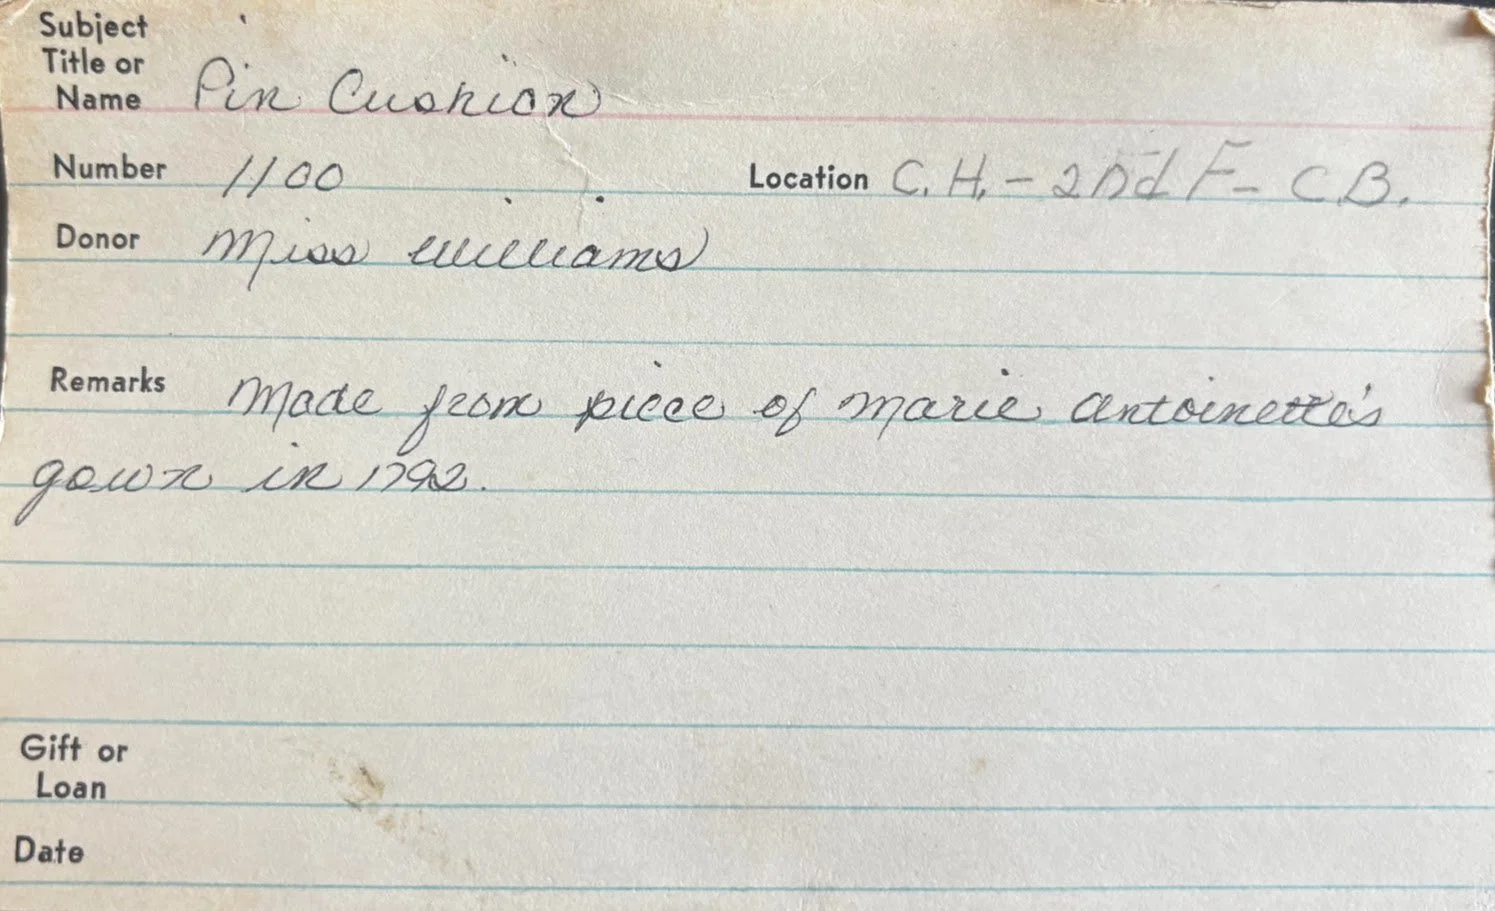 Subject
Title or
Name Pin Cushion
Number 1100 Location C.H. - 2nd F - C.B.
Donor Miss Williams
Remarks Made from piece of Marie Antoinette's
gown in 1792.
Gift or
Loan
Date